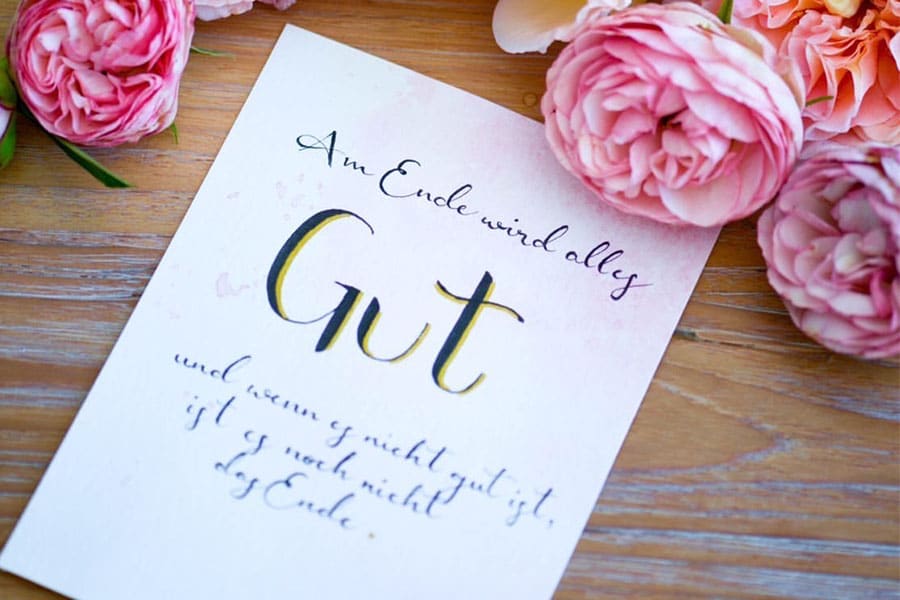 Am Ende wird alles
Gut
und wenn es nicht gut ist,
ist es noch nicht
das Ende.